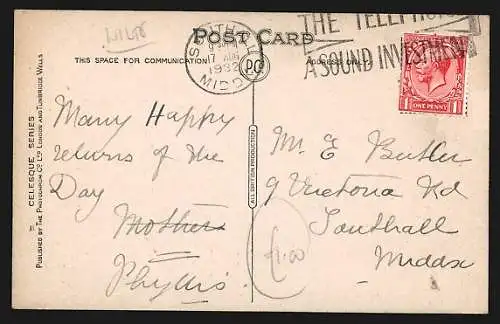 WILTS
POST CARD
THE TELEPHONE
A SOUND INVESTMENT
SOUTHALL
17 AUG
1932
MIDDX
THIS SPACE FOR COMMUNICATION
P.C.
ADDRESS ONLY
ONE PENNY
Many Happy
returns of the
Day Mother
Phyllis
Mr. E Butler
9 Victoria Rd
Southall
Middx
£1.00
CELESQUE SERIES
PUBLISHED BY THE PHOTOCHROM CO. LTD. LONDON AND TUNBRIDGE WELLS
ALL BRITISH PRODUCTION